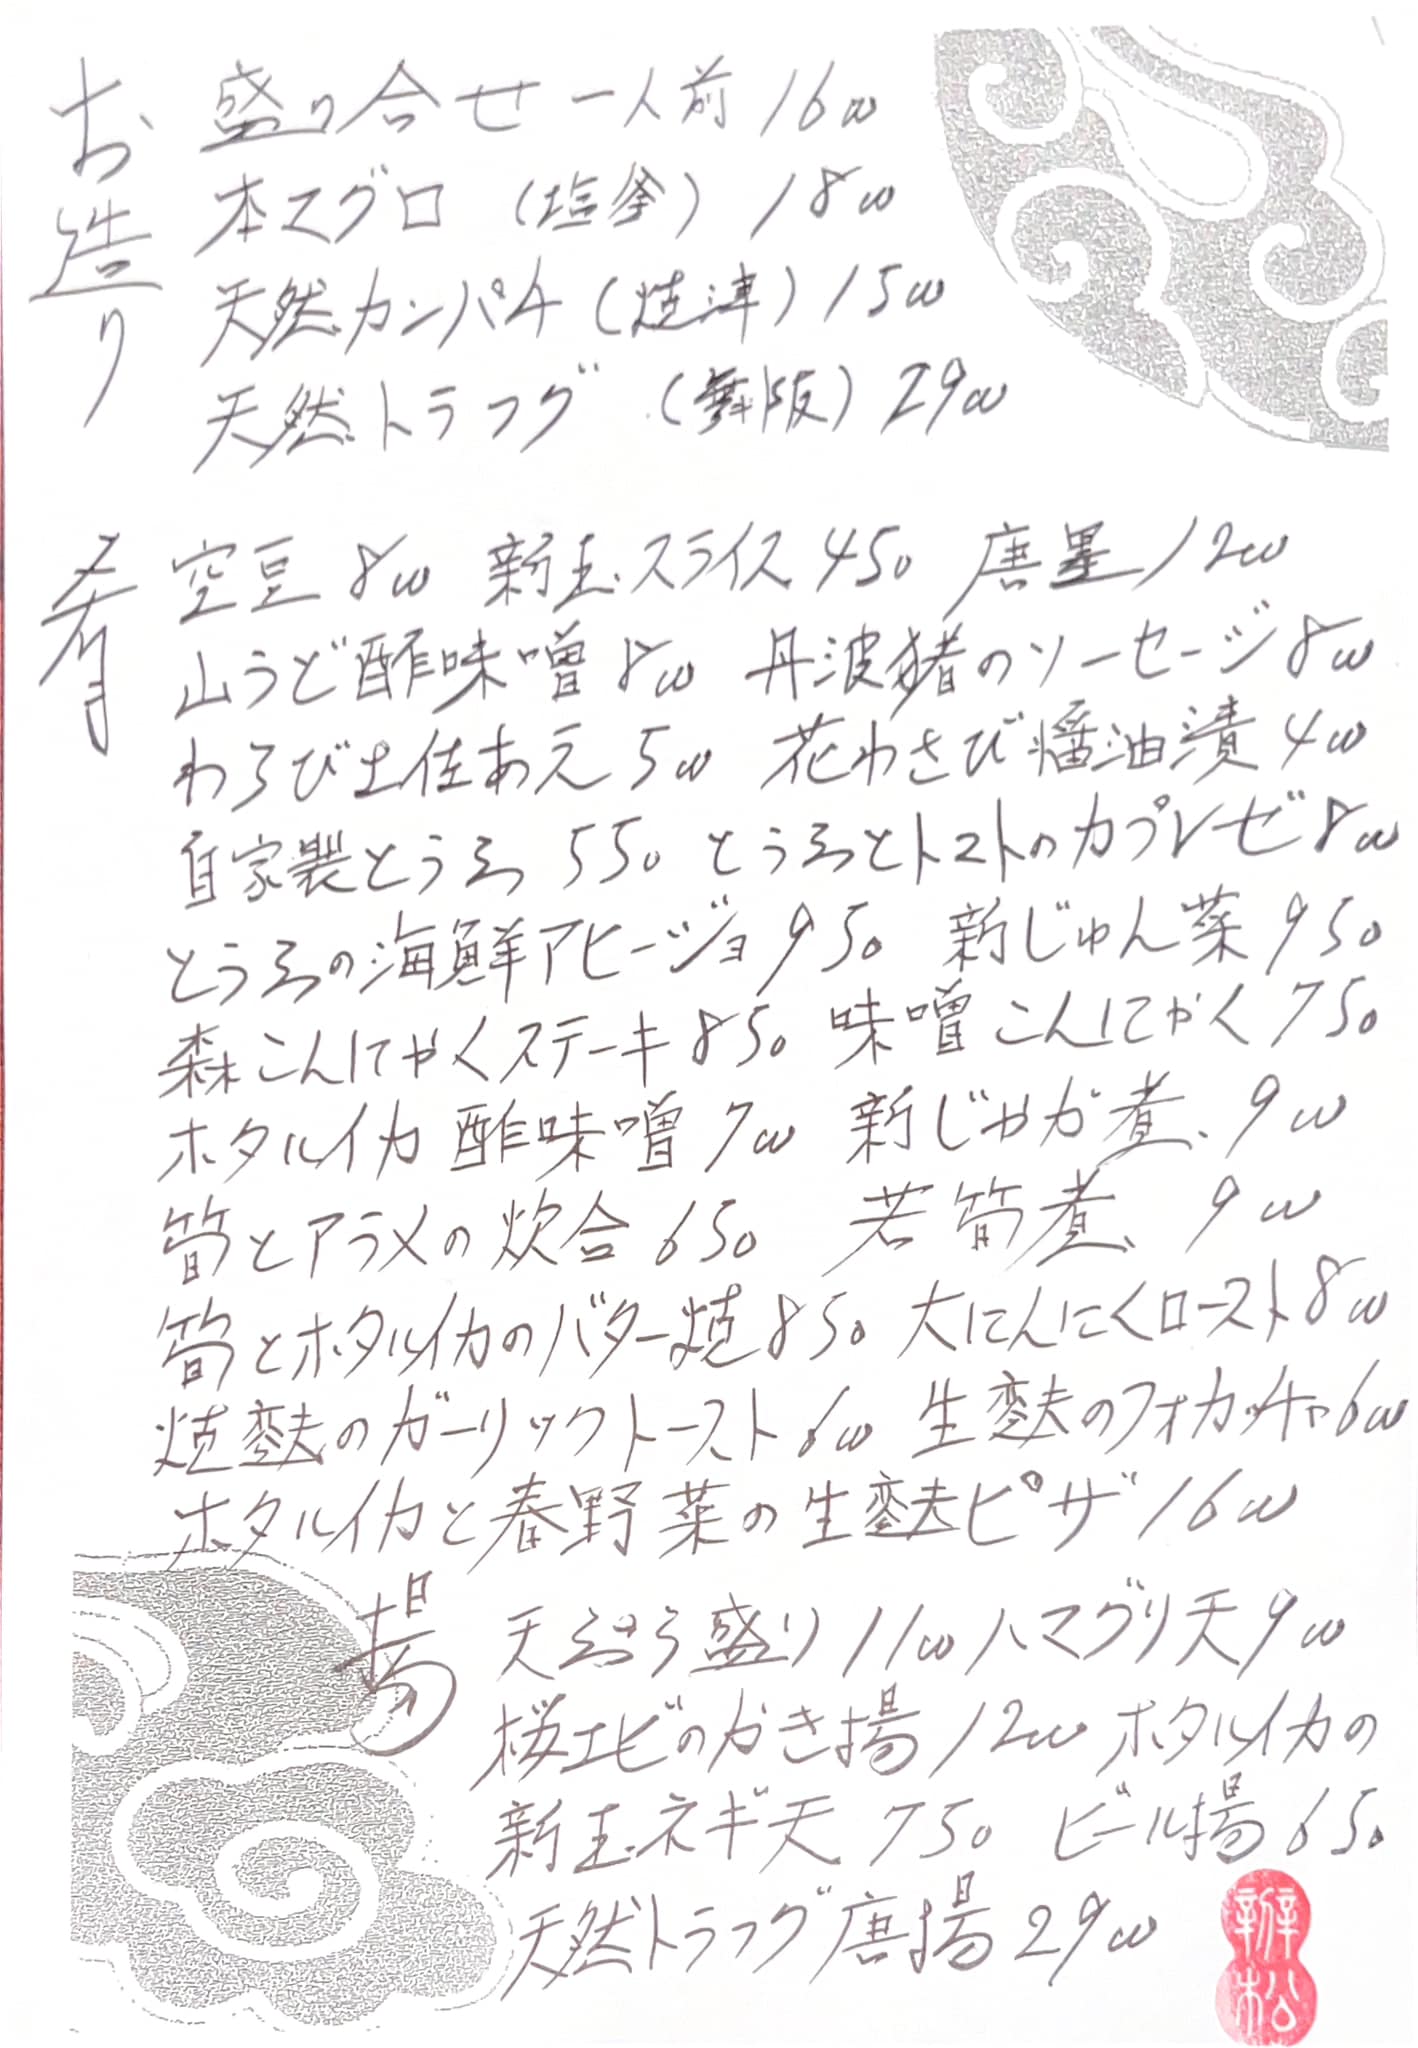 お造り
盛り合せ 一人前 1600
本マグロ (塩釜) 1800
天然カンパチ (焼津) 1500
天然トラフグ (舞阪) 2900
肴
空豆 800 新玉スライス 450 唐墨 1200
山うど酢味噌 800 丹波猪のソーセージ 800
わらび土佐あえ 500 花わさび醤油漬 400
自家製とうふ 550 とうふとトマトのカプレゼ 800
とうふの海鮮アヒージョ 950 新じゅん菜 950
森こんにゃくステーキ 850 味噌こんにゃく 750
ホタルイカ酢味噌 700 新じゃが煮 900
筍とアラメの炊合 650 若筍煮 900
筍とホタルイカのバター焼 850 大にんにくロースト 800
焼麩のガーリックトースト 600 生麩のフォカッチャ 600
ホタルイカと春野菜の生麩ピザ 1600
揚
天ぷら盛り 1100 ハマグリ天 900
桜エビのかき揚 1200 ホタルイカの
新玉ネギ天 750 ビール揚 650
天然トラフグ唐揚 2900
辦松